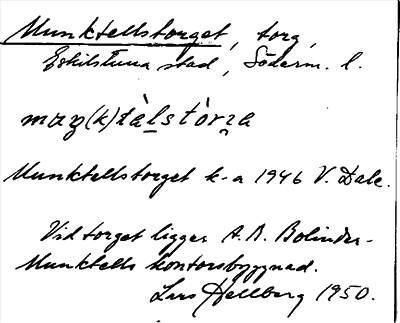 Munktellstorget, torg,
Eskilstuna stad, Söderm. l.
maŋ(k)tàlstórja
Munktellstorget k-a 1946 V. Dale.
Vid torget ligger A.B. Bolinder-
Munktells kontorsbyggnad.
Lars Hellberg 1950.